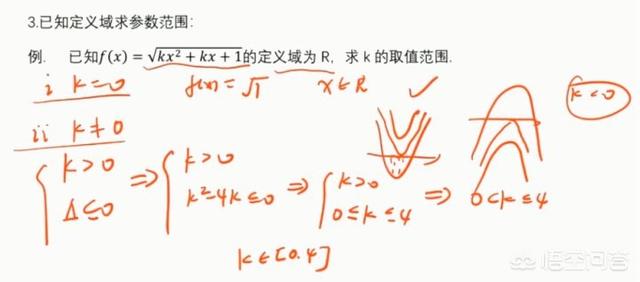 3.已知定义域求参数范围:
例. 已知f(x) = √(kx² + kx + 1)的定义域为 R，求 k 的取值范围.
i k=0 f(x)=√1 x∈R ✓ k<0
ii k≠0
{ k>0 ⇒ { k>0 ⇒ { k>0 ⇒ 0<k≤4
Δ≤0 k²-4k≤0 0≤k≤4
k∈[0.4]
悟空问答